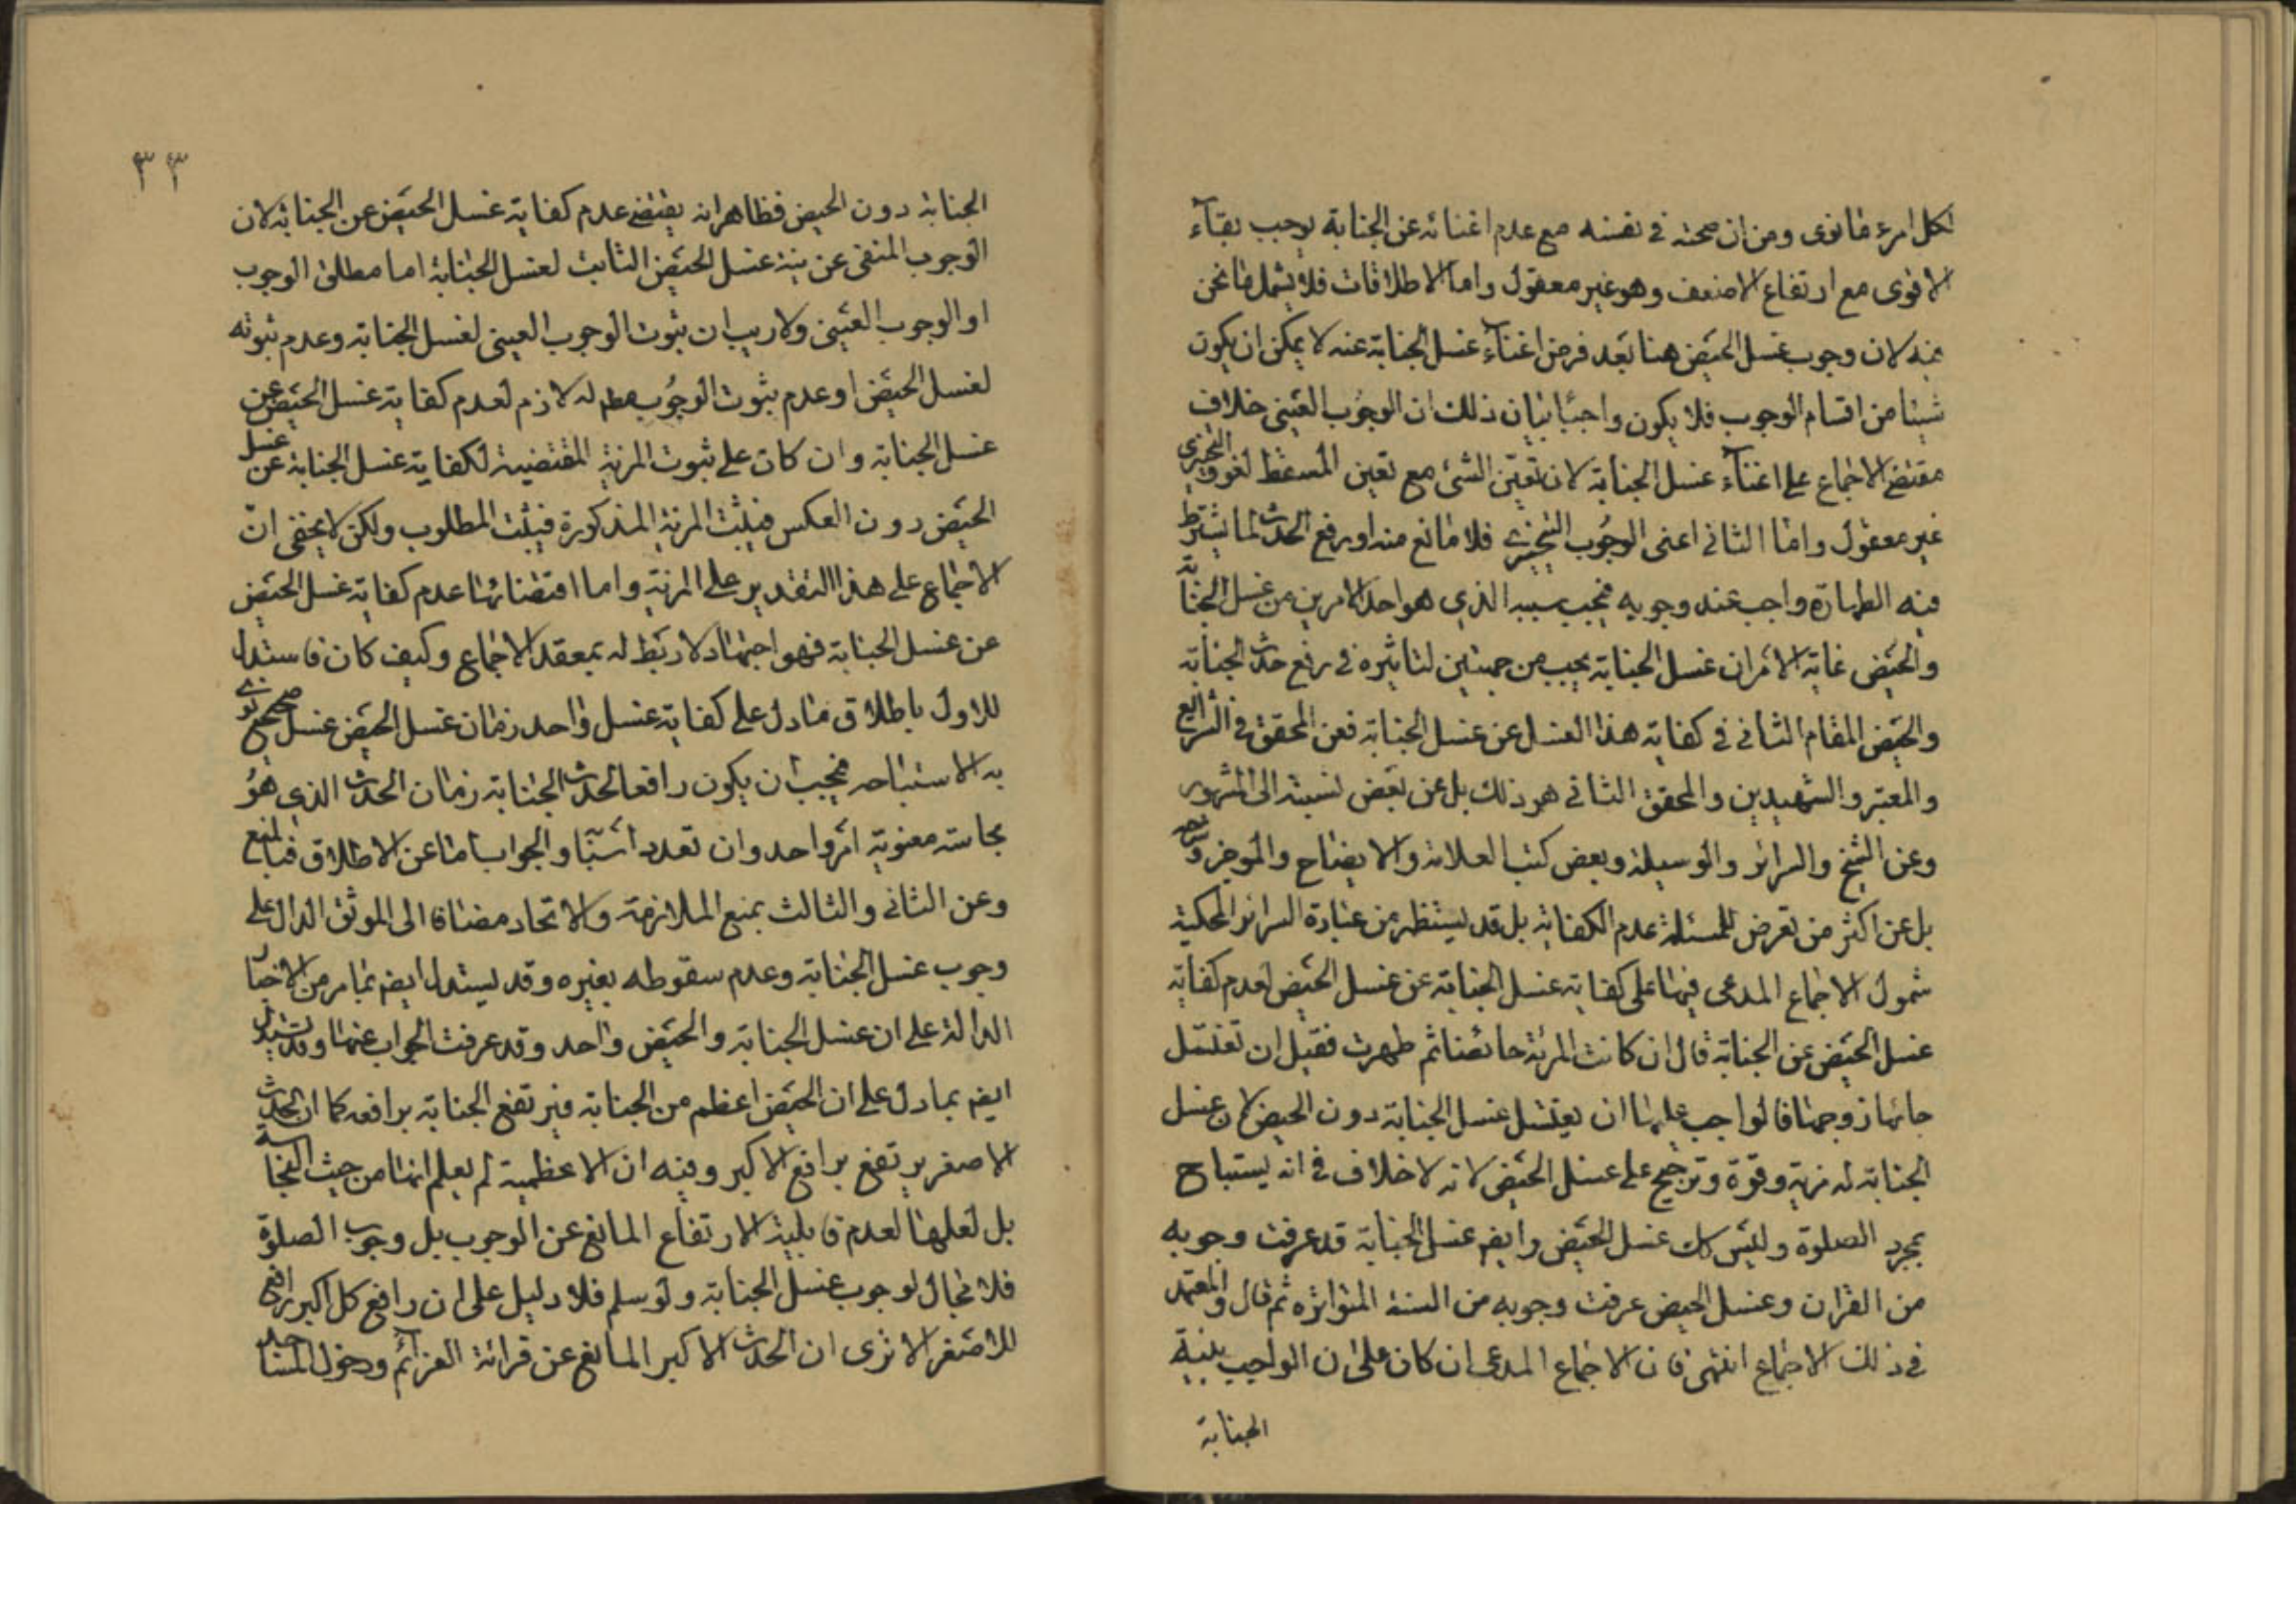 لكل امرء ما نوى ومن ان صحته في نفسه مع عدم اغنائه عن الجنابة يوجب بقآء
الاقوى مع ارتفاع الاضعف وهو غير معقول واما الاطلاقات فلا يشمل ما نحن
فيه لان وجوب غسل الحيض هنا بعد فرض اغنآء غسل الجنابة عنه لا يمكن ان يكون
شيئا من اقسام الوجوب فلا يكون واجبًا بيان ذلك ان الوجوب العيني خلاف
مقتضى الاجماع على اغنآء غسل الجنابة لان تعيّن الشئ مع تعين المسقط لغو والتخييري
غير معقول واما الثاني اعنى الوجوب التخييري فلا مانع منه او رفع الحدث لما يشترط
فيه الطهارة واجب عند وجوبه فيجب سببه الذي هو احد الامرين من غسل الجنابة
والحيض غاية الامر ان غسل الجنابة يجب من جهتين لتاثيره في رفع حدث الجنابة
والحيض المقام الثاني في كفاية هذا الغسل عن غسل الجنابة فعن المحقق في الشرايع
والمعتبر والشهيدين والمحقق الثاني هو ذلك بل عن بعض نسبته الى المشهور
وعن الشيخ والسرائر والوسيلة وبعض كتب العلامة والايضاح والموجز وشرحه
بل عن اكثر من تعرض للمسئلة عدم الكفاية بل قد يستظهر من عبارة السرائر المحكية
شمول الاجماع المدعى فيها على كفاية غسل الجنابة عن غسل الحيض لعدم كفاية
غسل الحيض عن الجنابة قال ان كانت المرئة حائضا ثم طهرت فقبل ان تغتسل
جامعها زوجها فالواجب عليها ان يغتسل غسل الجنابة دون الحيض لان غسل
الجنابة له مزية وقوة وترجيح على غسل الحيض لانه لا خلاف في انه يستباح
بمجرد الصلوة وليس كك غسل الحيض وايضر غسل الجنابة قد عرفت وجوبه
من القران وغسل الحيض عرفت وجوبه من السنة المتواترة ثم قال والمعتمد
في ذلك الاجماع انتهى فان الاجماع المدعى ان كان على ان الواجب بنية
الجنابة
٣٣
الجنابة دون الحيض فظاهر انه يقتضى عدم كفاية غسل الحيض عن الجنابة لان
الوجوب المنفى عن نية غسل الحيض الثابت لغسل الجنابة اما مطلق الوجوب
او الوجوب العيني ولا ريب ان ثبوت الوجوب العيني لغسل الجنابة وعدم ثبوته
لغسل الحيض او عدم ثبوت الوجوب مطم له لازم لعدم كفاية غسل الحيض عن
غسل الجنابة وان كان على ثبوت المزية المقتضية لكفاية غسل الجنابة عن غسل
الحيض دون العكس فيثبت المزية المذكورة فيثبت المطلوب ولكن لا يخفى انّ
الاجماع على هذا التقدير على المزية واما اقتضائها عدم كفاية غسل الحيض
عن غسل الجنابة فهو اجتهاد لا ربط له بمعقد الاجماع وكيف كان فاستدل
للاول باطلاق ما دل على كفاية غسل واحد وبان غسل الحيض غسل صحيح نوى
به الاستباحه فيجب ان يكون رافعا لحدث الجنابة وبان الحدث الذي هو
نجاسة معنوية امر واحد وان تعدد اسبابه والجواب اما عن الاطلاق فبالمنع
وعن الثاني والثالث بمنع الملازمة والاتحاد مضافا الى الموثق الدال على
وجوب غسل الجنابة وعدم سقوطه بغيره وقد يستدل ايضر بما مر من الاخبار
الدالة على ان غسل الجنابة والحيض واحد وقد عرفت الجواب عنها وقد يستدل
ايضر بما دل على ان الحيض اعظم من الجنابة فيرتفع الجنابة برافعه كما ان الحدث
الاصغر يرتفع برافع الاكبر وفيه ان الاعظمية لم يعلم انها من حيث النجاسة
بل لعلها لعدم قابلية الارتفاع المانع عن الوجوب بل وجوب الصلوة
فلا مجال لوجوب غسل الجنابة ولو سلم فلا دليل على ان رافع كل اكبر رافع
للاصغر الا ترى ان الحدث الاكبر المانع عن قرائة العزائم ودخول المساجد